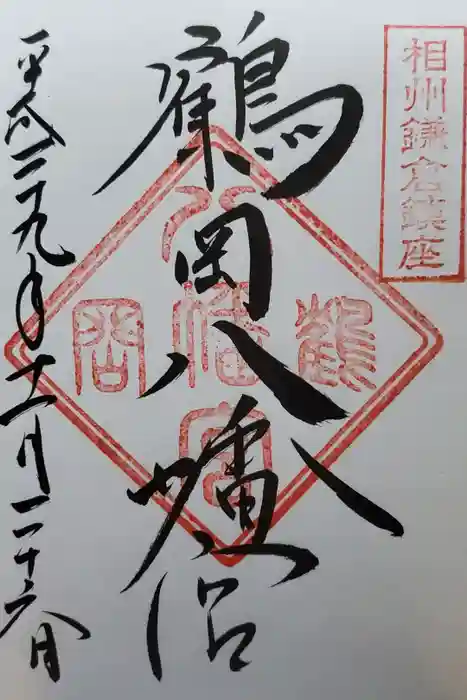 相州鎌倉鎮座
鶴岡八幡宮
鶴岡八幡宮
平成二九年十二月二十六日